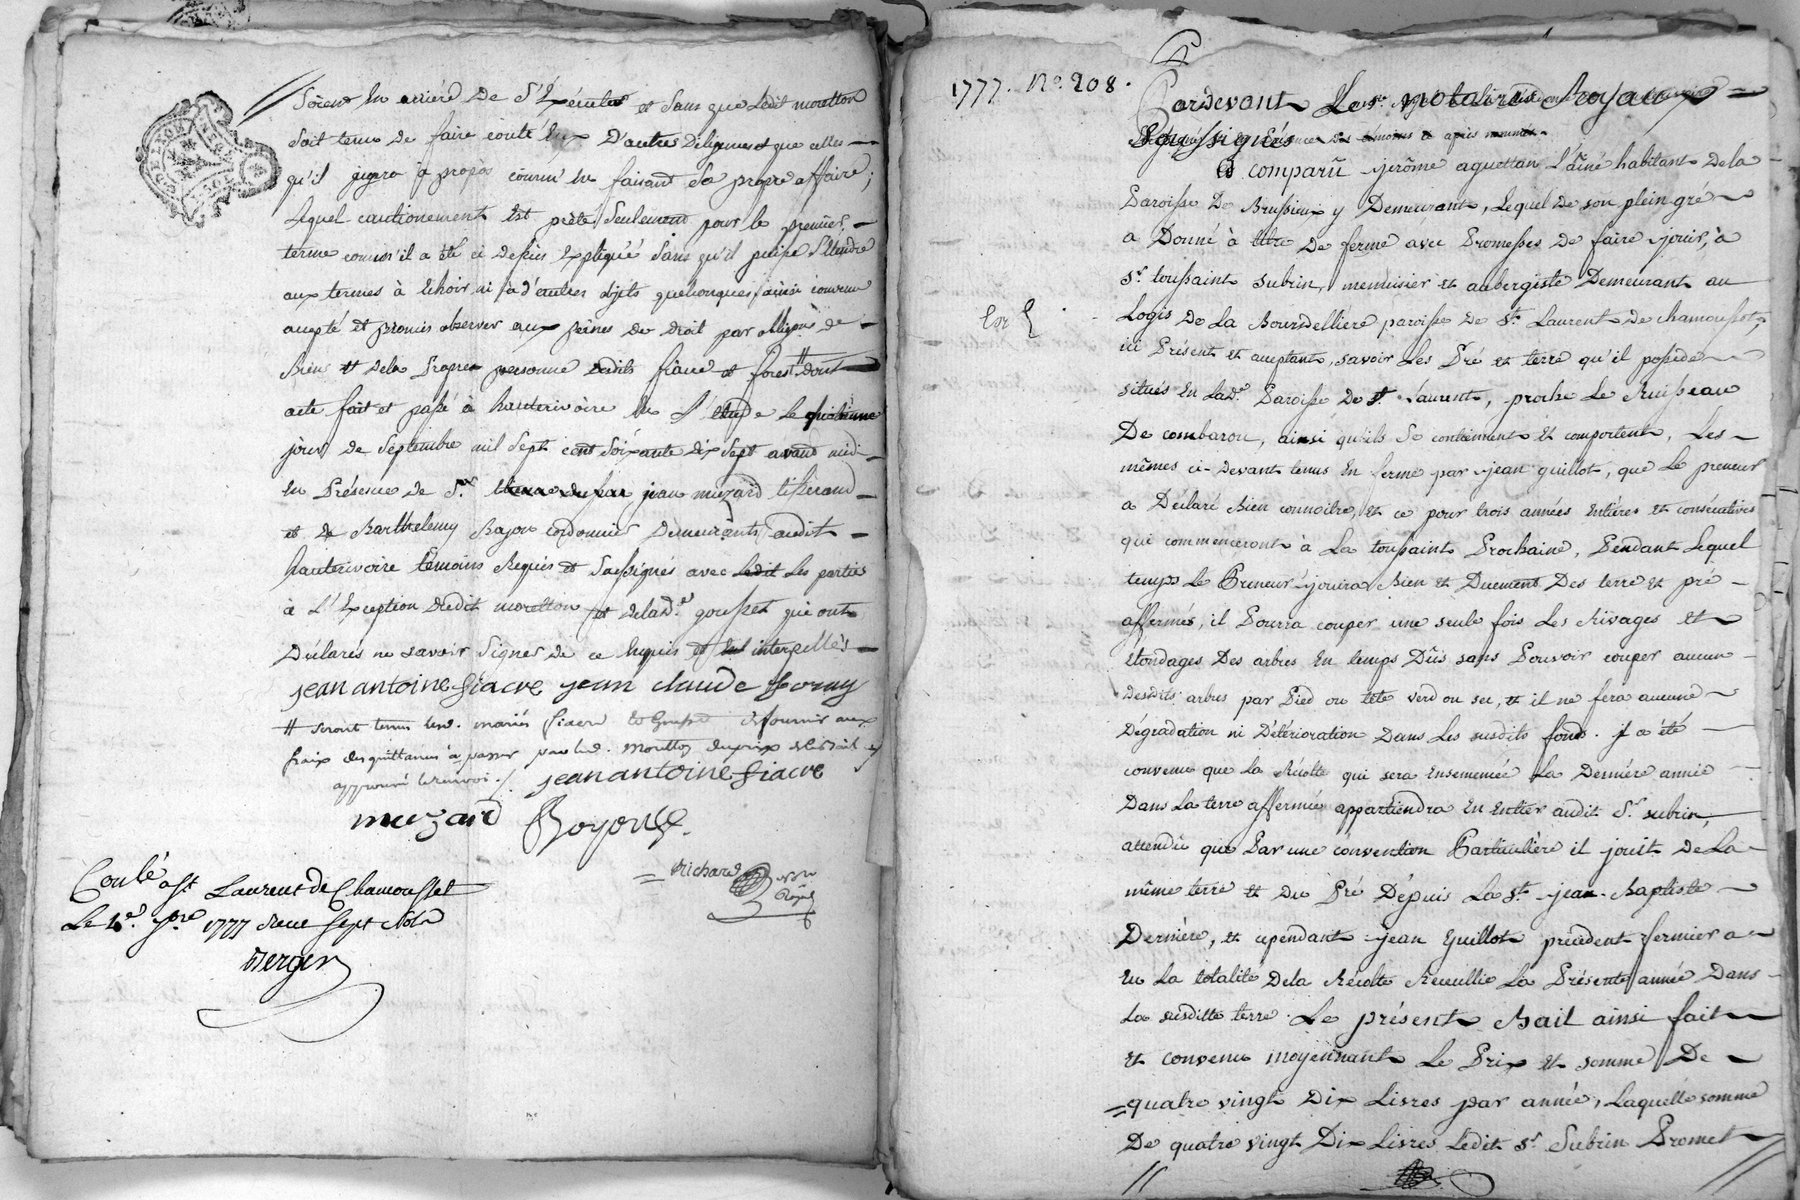 soient en arriere de s'Exécuter et sans que ledit moretton
soit tenu de faire contr'eux D'autres diligences que celles
qu'il jugera à propos comm' en faisant sa propre affaire;
Lequel cautionement est prété seulement pour le premier
terme comm'il a été ci dessus Expliqué sans qu'il puisse s'Etendre
aux termes à Echoir ni à d'autres objets quelconques ainsi convenu
accepté et promis observer aux peines de droit par obligaon de
Biens et dela Propre personne desdits fiacre et forest # dont
acte fait et passé à hauterivoire En l'étude Le quatrieme
jour de septembre mil sept cent soixante dix sept avant midi
En Présence de Sr. jean muzard tisserand
et de Barthelemy Bajon cordonnier Demeurants audit
hauterivoire temoins Requis et soussignes avec les parties
à L'Exception dudit moretton et delade gousset qui ont
Déclarés ne savoir signer de ce Requis et interpellés
jean antoine fiacre jean claude foray
# seront tenus lesd. mariés fiacre et Gousset de fournir aux
fraix des quittances à passer par led. Moretton du prix
approuvé le renvoi ./. jean antoine fiacre
muzard Boyon
Richard nore Royal
Conlé a St Laurent de Chamousset
Le 4e. 7bre 1777 Reçu sept sols
Berger
1777. No. 208.
Pardevant Les notaires Royaux
soussignés
A comparu jerôme aguettan L'âiné habitant dela
Paroisse De Brussieux y Demeurant, Lequel de son plein gré
a Donné à titre de ferme avec Promesses de faire jouir, à
Sr. toussaint subrin, menuisier et aubergiste Demeurant au
Logis de La Bourdelliere paroisse de St. Laurent de chamousset,
ici Présent et acceptant, savoir Les Pré et terre qu'il possède
situés en Lade. Paroisse De St. Laurent, proche Le Ruisseau
De combaron, ainsi qu'ils se contiennent et comportent, Les
mêmes ci-devant tenus En ferme par jean guillot, que Le preneur
a Déclaré Bien connoitre, et ce pour trois années Entières et consécutives
qui commenceront à La toussaint Prochaine, Pendant Lequel
temps Le Preneur jouira Bien et Duement Des terre et pré
affermés, il Pourra couper une seule fois Les Rivages et
Etondages Des arbres En temps Dûs sans Pouvoir couper aucun
desdits arbres par Pied ou tête verd ou sec, et il ne fera aucune
Dégradation ni Détérioration Dans Les susdits fonds. il a été
convenu que La Récolte qui sera Ensemencée La Dernière année
Dans La terre affermée appartiendra En Entier audit Sr. subrin,
attendu que Par une convention Particulière il jouit De La
même terre et du Pré Depuis La St. jean-Baptiste
Dernière, et cependant jean guillot précédent fermier a
Eu La totalité dela Récolte Recueillie La Présente année Dans
La susditte terre. Le présent Bail ainsi fait
et convenu moyennant Le Prix et somme De
quatre vingt Dix Livres par année, Laquelle somme
De quatre vingt Dix Livres Ledit Sr. Subrin Promet